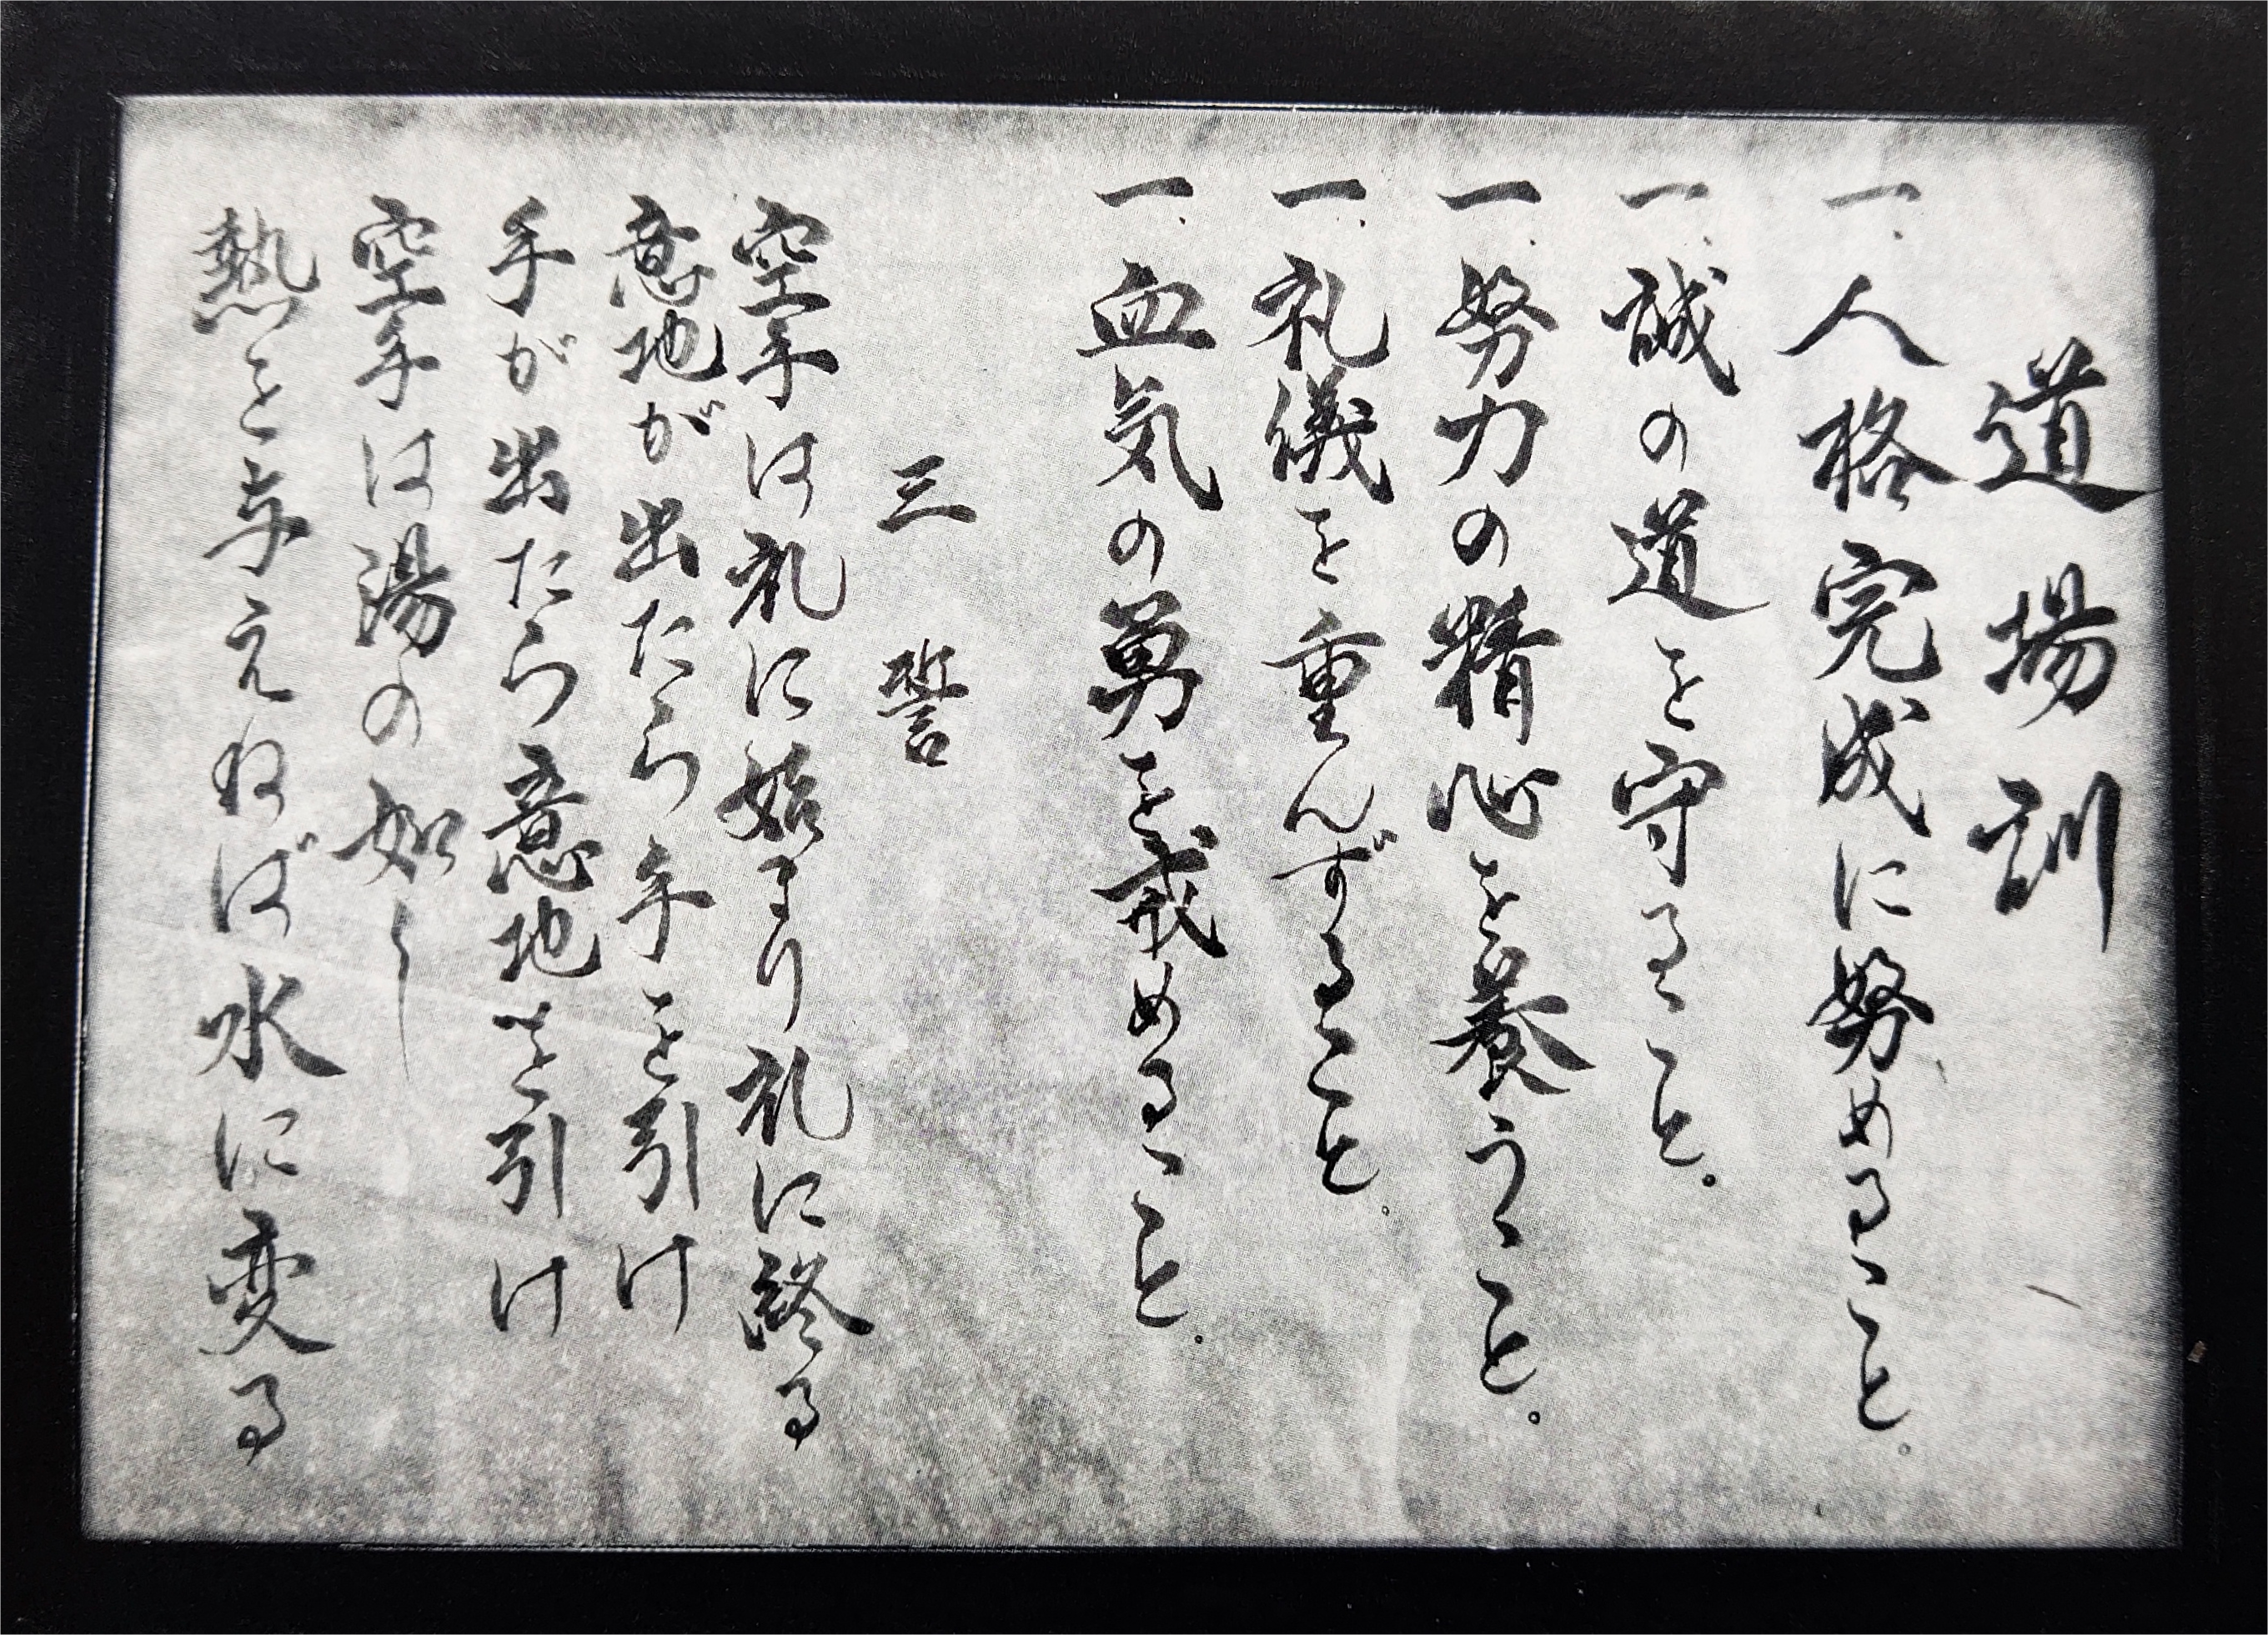 道場訓
一、人格完成に努めること。
一、誠の道を守ること。
一、努力の精心を養うこと。
一、礼儀を重んずること。
一、血気の勇を戒めること。
三誓
空手は礼に始まり礼に終る
意地が出たら手を引け
手が出たら意地を引け
空手は湯の如し
熱を与えねば水に変る